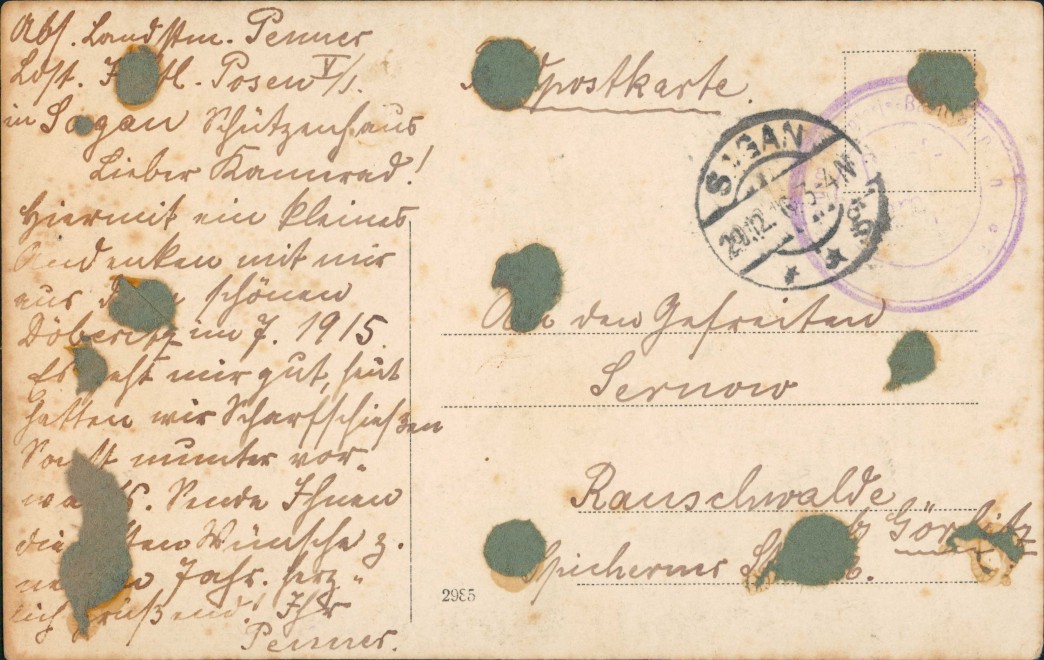 Abs. Landstm. Penner
Ldst. Inftl. Posen V/1.
in Sagan Schützenhaus
Lieber Kamerad!
Hiermit ein kleines
Andenken mit mir
aus schönen
Döberitz im J. 1915.
Es geht mir gut, heut
hatten wir Scharfschießen
Sonst munter vor-
wärts. Sende Ihnen
die besten Wünsche z.
neuen Jahr. herz-
lich grüßend! Ihr
Penner.
Feldpostkarte.
SAGAN
29.12.
An den Gefreiten
Sernow
Rauschwalde
b Görlitz
Spicherner Str.
2985